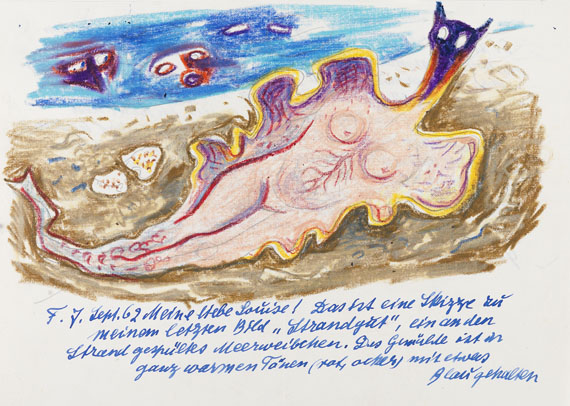 F. J. Sept. 62 Meine liebe Louise! Das ist eine Skizze zu
meinem letzten Bild „Strandgut", ein an den
Strand gespültes Meerweibchen. Das Gemälde ist in
ganz warmen Tönen (rot, ocker) mit etwas
Blau gehalten